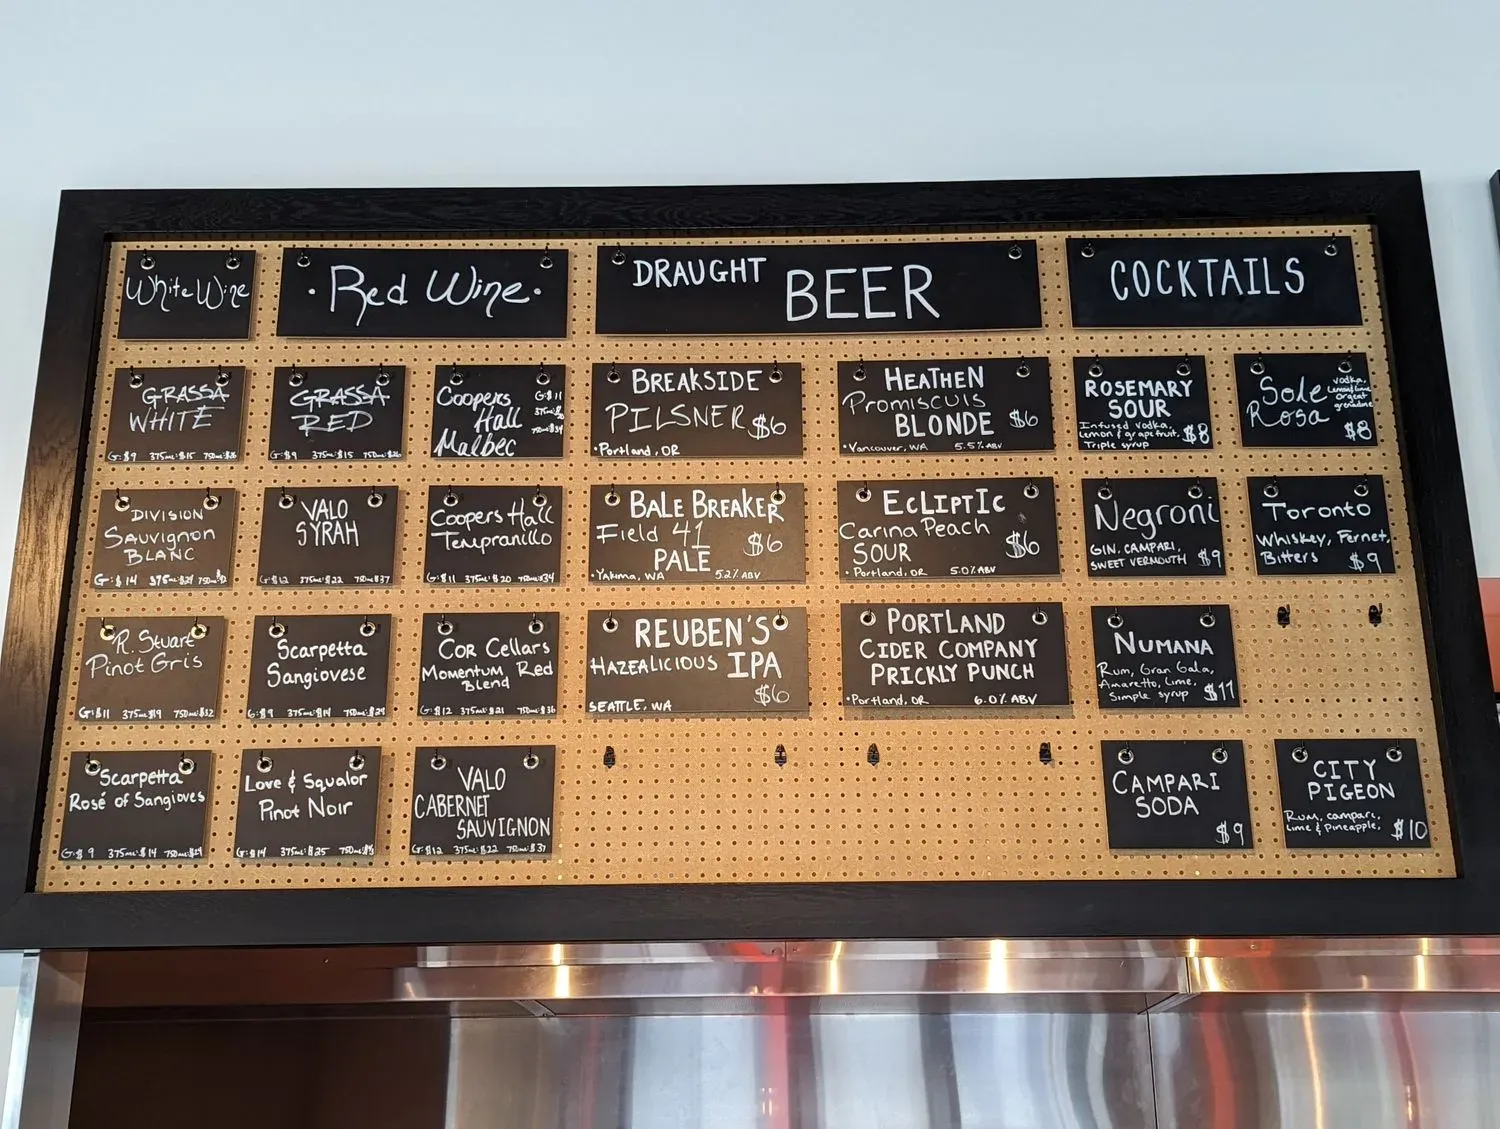 White Wine
GRASSA
WHITE
G: $9 375mL: $15 750mL: $26
DIVISION
SAUVIGNON
BLANC
G: $14 375mL: $24
R. Stuart
Pinot Gris
G: $11 375mL $19 750mL: $32
Scarpetta
Rosé of Sangioves
G: $9 375mL: $14 750mL: $24
• Red Wine •
GRASSA
RED
G: $9 375mL: $15 750mL: $26
VALO
SYRAH
G: $12 375mL: $22 750mL: $37
Scarpetta
Sangiovese
G: $9 375mL: $14 750mL: $24
Love & Squalor
Pinot Noir
G: $14 375mL: $25
Coopers
Hall
Malbec
G: $11
Coopers Hall
Tempranillo
G: $11 375mL: $20 750mL: $34
COR Cellars
Momentum Red
Blend
G: $12 375mL: $21 750mL: $36
VALO
CABERNET
SAUVIGNON
G: $12 375mL: $22 750mL: $37
DRAUGHT BEER
BREAKSIDE
PILSNER $6
• Portland, OR
BALE BREAKER
Field 41
PALE $6
• Yakima, WA 5.2% ABV
REUBEN'S
HAZEALICIOUS IPA
$6
SEATTLE, WA
HEATHEN
Promiscuis
BLONDE $6
• Vancouver, WA 5.5% ABV
ECLIPTIC
Carina Peach
SOUR $6
• Portland, OR 5.0% ABV
PORTLAND
CIDER COMPANY
PRICKLY PUNCH
• Portland, OR 6.0% ABV
COCKTAILS
ROSEMARY
SOUR
Infused vodka,
lemon & grapefruit,
Triple syrup $8
Negroni
GIN, CAMPARI,
SWEET VERMOUTH $9
NUMANA
Rum, Gran Gala,
Amaretto, Lime,
Simple syrup $11
CAMPARI
SODA
$9
Sole
Rosa
vodka,
orgeat
grenadine
$8
Toronto
Whiskey, Fernet,
Bitters $9
CITY
PIGEON
Rum, campari,
lime & pineapple, $10